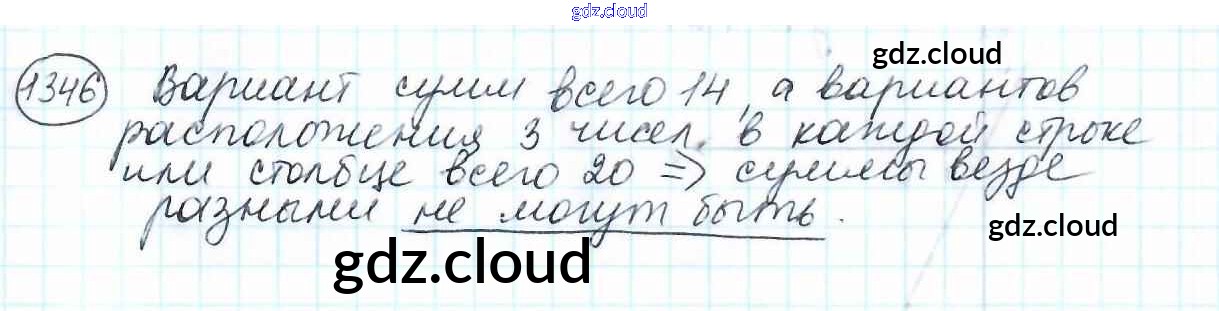 gdz.cloud
gdz.cloud
1346 Вариант сумм всего 14, а вариантов
расположения 3 чисел в каждой строке
или столбце всего 20 => суммы везде
разными не могут быть.
gdz.cloud
gdz.cloud